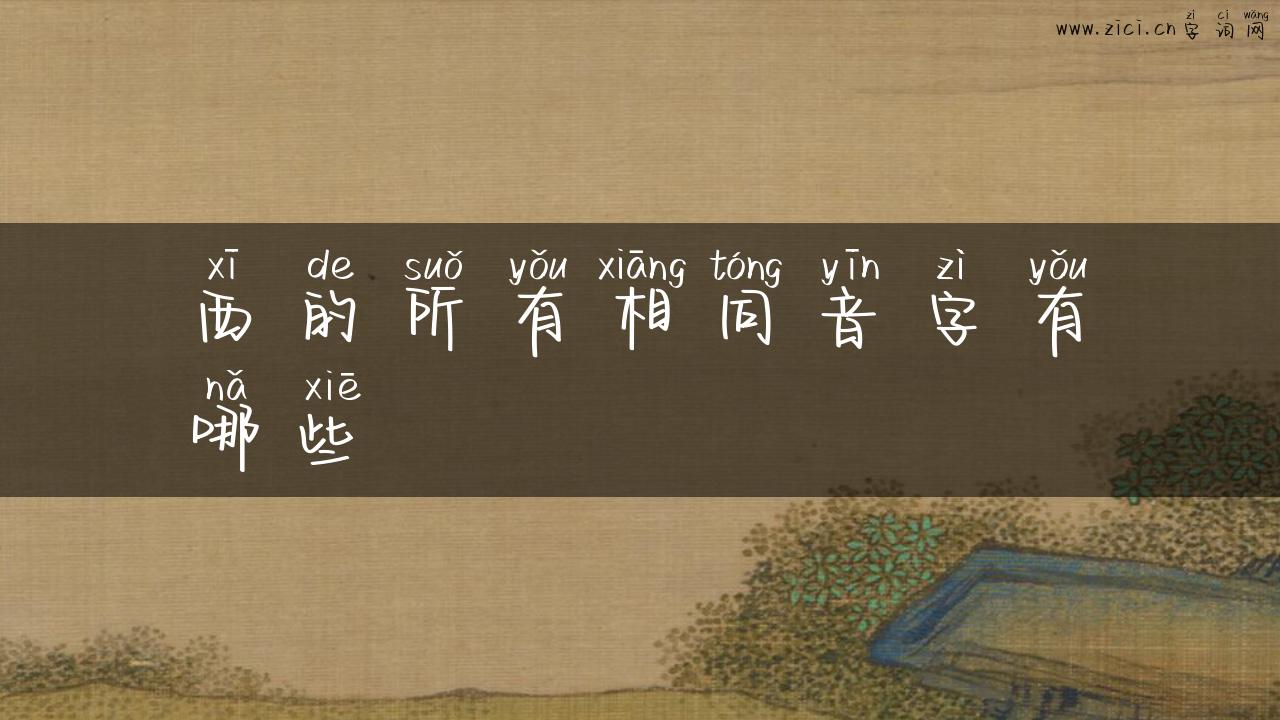 zì cí wǎng
www.zici.cn 字词网
xī de suǒ yǒu xiāng tóng yīn zì yǒu
西的所有相同音字有
nǎ xiē
哪些